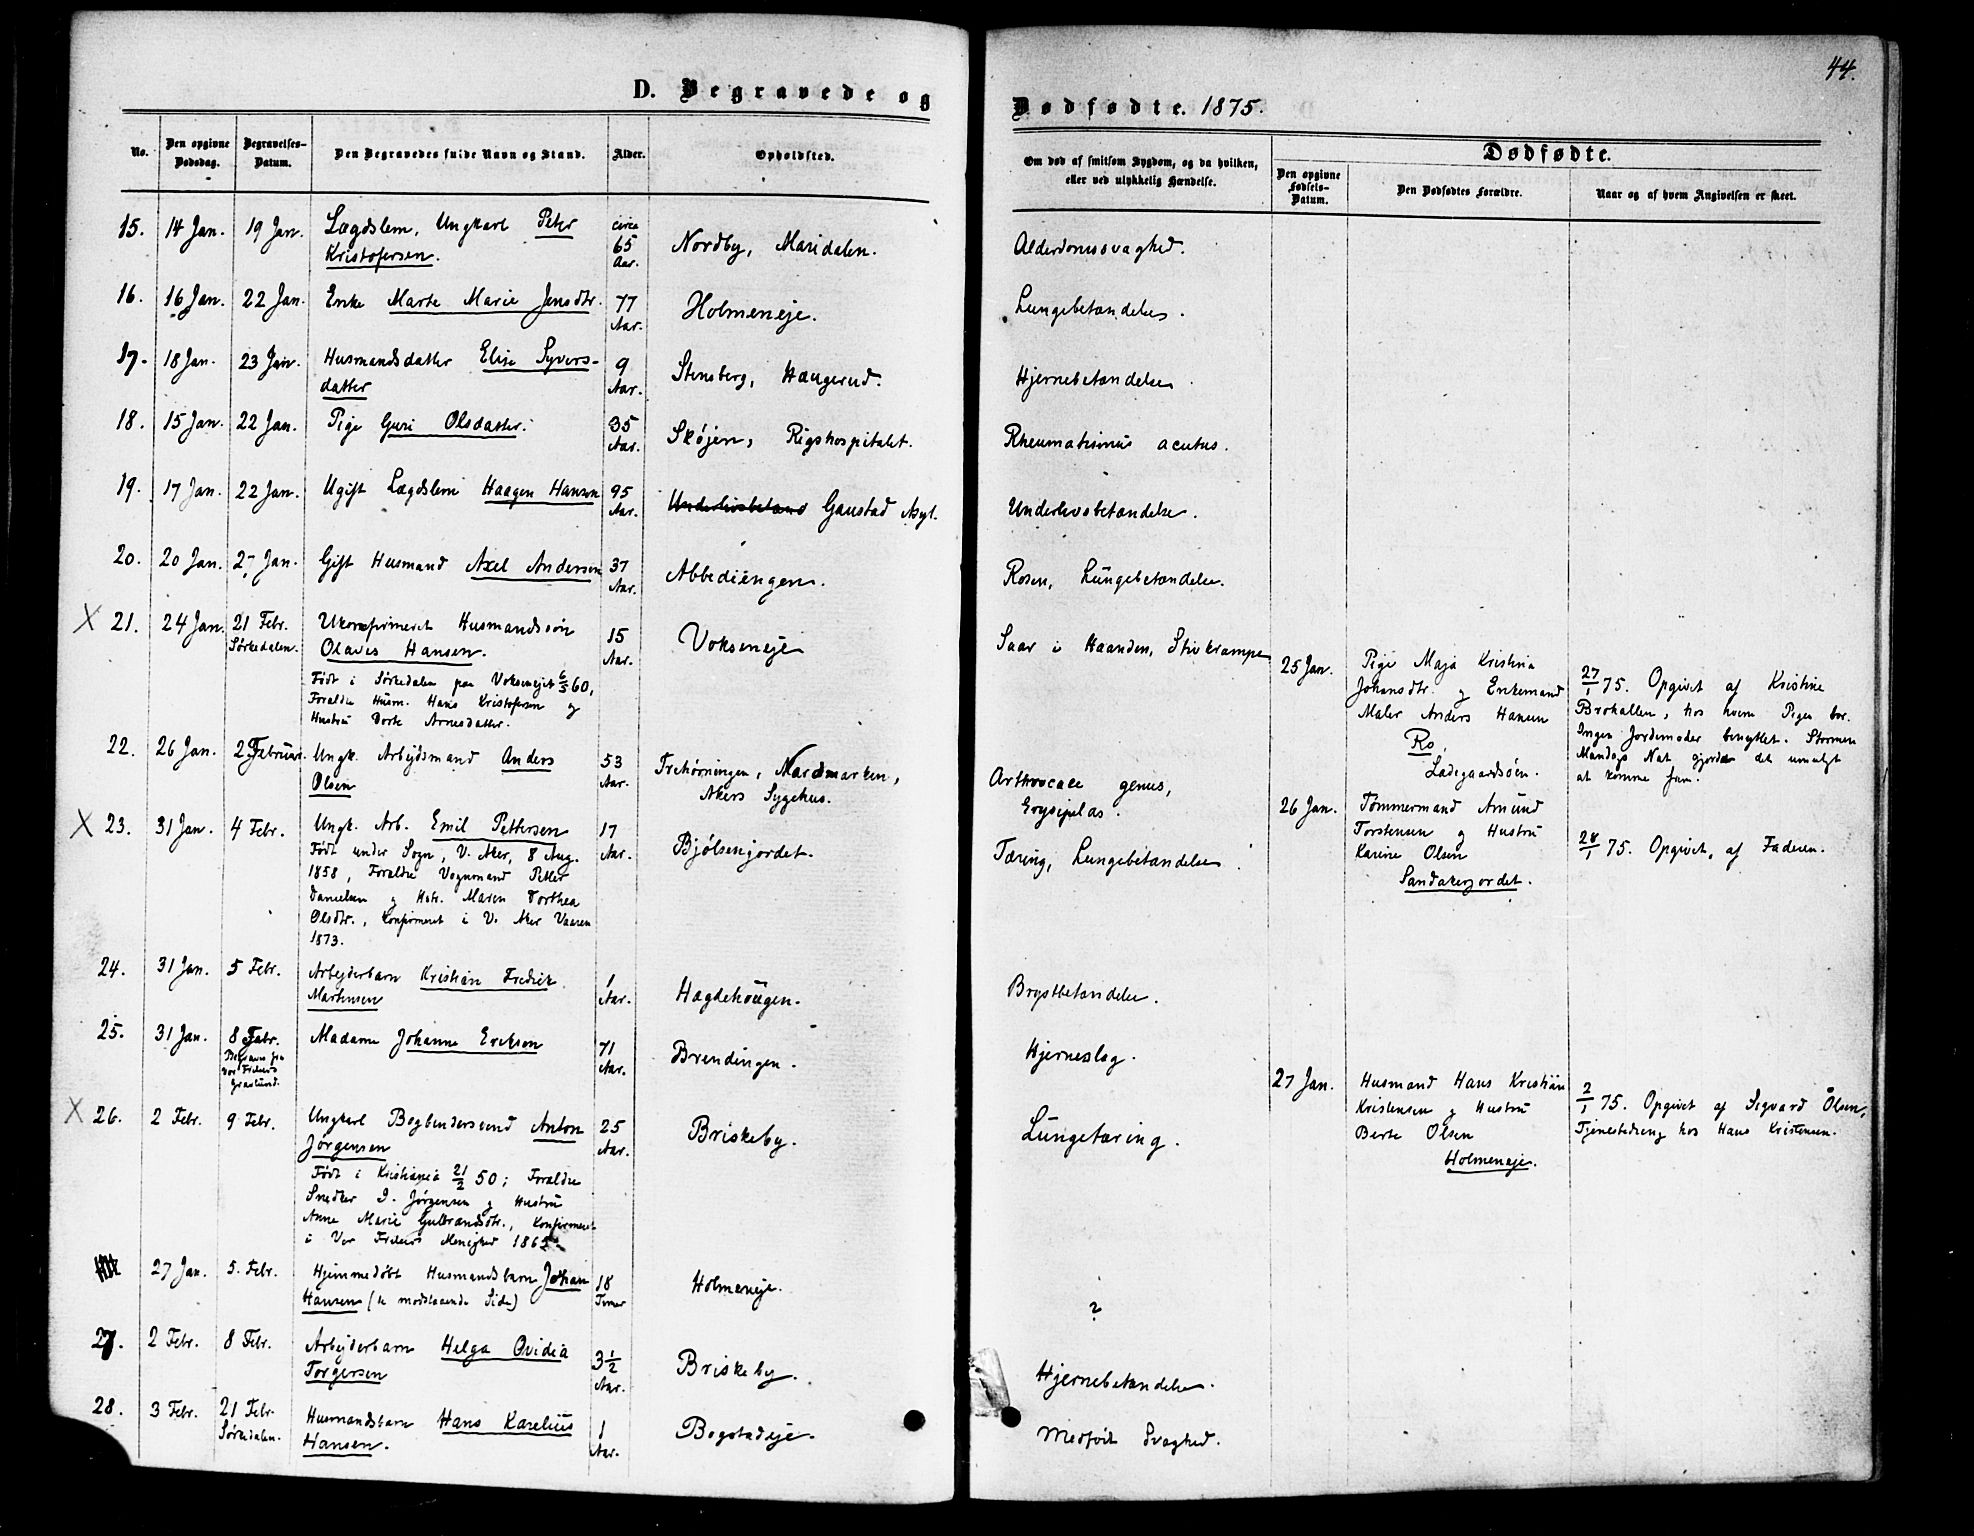 44.
D. Begravede og
Dødfødte. 1875.
No.
Den opgivne Dødsdag.
Begravelses-Datum.
Den Begravedes fulde Navn og Stand.
Alder.
Opholdsted.
Om død af smitsom Sygdom, og da hvilken,
eller ved ulykkelig Hændelse.
Dødfødte.
Den opgivne Fødsels-Datum.
Den Dødfødtes Forældre.
Naar og af hvem Angivelsen er skeet.
15. 14 Jan. 19 Jan. Lægdslem, Ungkarl Peter circa 65 Aar. Nordby, Maridalen. Alderdomssvaghed.
Kristofersen.
16. 16 Jan. 22 Jan. Enke Marte Marie Jensdtr. 77 Aar. Holmeneje. Lungebetændelse.
17. 18 Jan. 23 Jan. Husmandsdatter Elise Syvers- 9 Aar. Stensberg, Haugerud. Hjernebetændelse.
datter
18. 15 Jan. 22 Jan. Pige Guri Olsdatter. 35 Aar. Skøjen, Rigshospitalet. Rheumatismus acutus.
19. 17 Jan. 22 Jan. Ugift Lægdslem Haagen Hansen 95 Aar. Underlivsbetænd Gaustad Asyl. Underlivsbetændelse.
20. 20 Jan. 27 Jan. Gift Husmand Axel Andersen 37 Aar. Abbediengen. Rosen, Lungebetændelse.
X 21. 24 Jan. 21 Febr. Ukonfirmeret Husmandssøn 15 Aar. Vokseneje Saar i Haanden, Stivkrampe
Sørkedalen. Olaves Hansen.
Født i Sørkedalen paa Voksenejet 6/5 60,
Foraldre Husm. Hans Kristofersen og
Hustru Dorte Arnesdatter.
25 Jan. Pige Maja Kristina
Johansdtr. og Enkemand
Maler Anders Hansen
Ro,
Ladegaardsøen.
27/1 75. Opgivet af Kristine
Brohallen, hos hvem Pigen bor.
Ingen Jordemoder benyttet. Stormen
Mandags Nat gjorde det umuligt
at komme frem.
22. 26 Jan. 2 Februar. Ungk. Arbejdsmand Anders 53 Aar. Trehørningen, Nordmarken, Arthrocace genus,
Olsen Akers Sygehus. Erysipelas.
26 Jan. Tømmermand Amund
Torstensen og Hustru
Karine Olsen
Sandakerjordet.
28/1 75. Opgivet, af Faderen.
X 23. 31 Jan. 4 Febr. Ungk. Arb. Emil Pettersen 17 Aar. Bjølsenjordet. Tæring, Lungebetændelse
Født under Sogn, V. Aker, 8 Aug.
1858, Foraldre Vognmand Petter
Danielsen og Hstr. Maren Dorthea
Olsdtr., Konfirmeret i V. Aker Vaaren
1873.
24. 31 Jan. 5 Febr. Arbejderbarn Kristian Fredrik 1 Aar. Hægdehougen. Brystbetændelse.
Martinsen
25. 31 Jan. 8 Febr. Madame Johanne Erikson 71 Aar. Brendingen. Hjerneslag.
Begravn fra
Vor Frelsers
Gravlund.
27 Jan. Husmand Hans Kristian
Kristensen og Hustru
Berte Olsen
Holmeneje.
2/1 75. Opgivet af Sigvard Olsen,
Tjenestedreng hos Hans Kristensen.
X 26. 2 Febr. 9 Febr. Ungkarl Bogbindersvend Anton 25 Aar. Briskeby. Lungetæring.
Jørgensen
Født i Kristiania 21/2 50; Foraldre
Snedker I. Jørgensen og Hustru
Anne Marie Gulbrandsdtr., Konfirmeret
i Vor Frelsers Menighed 1865.
27 Jan. 5. Febr. Hjemmedøbt Husmandsbarn Johan 18 Timer Holmeneje. ?
Hansen (se modstaaende Side)
27. 2 Febr. 8 Febr. Arbejderbarn Helga Ovidia 3 1/2 Aar. Briskeby. Hjernebetændelse.
Torgersen
28. 3 Febr. 21 Febr. Husmandsbarn Hans Karelius 1 Aar. Bogstadeje. Medfødt Svaghed.
Sørkedalen. Hansen.